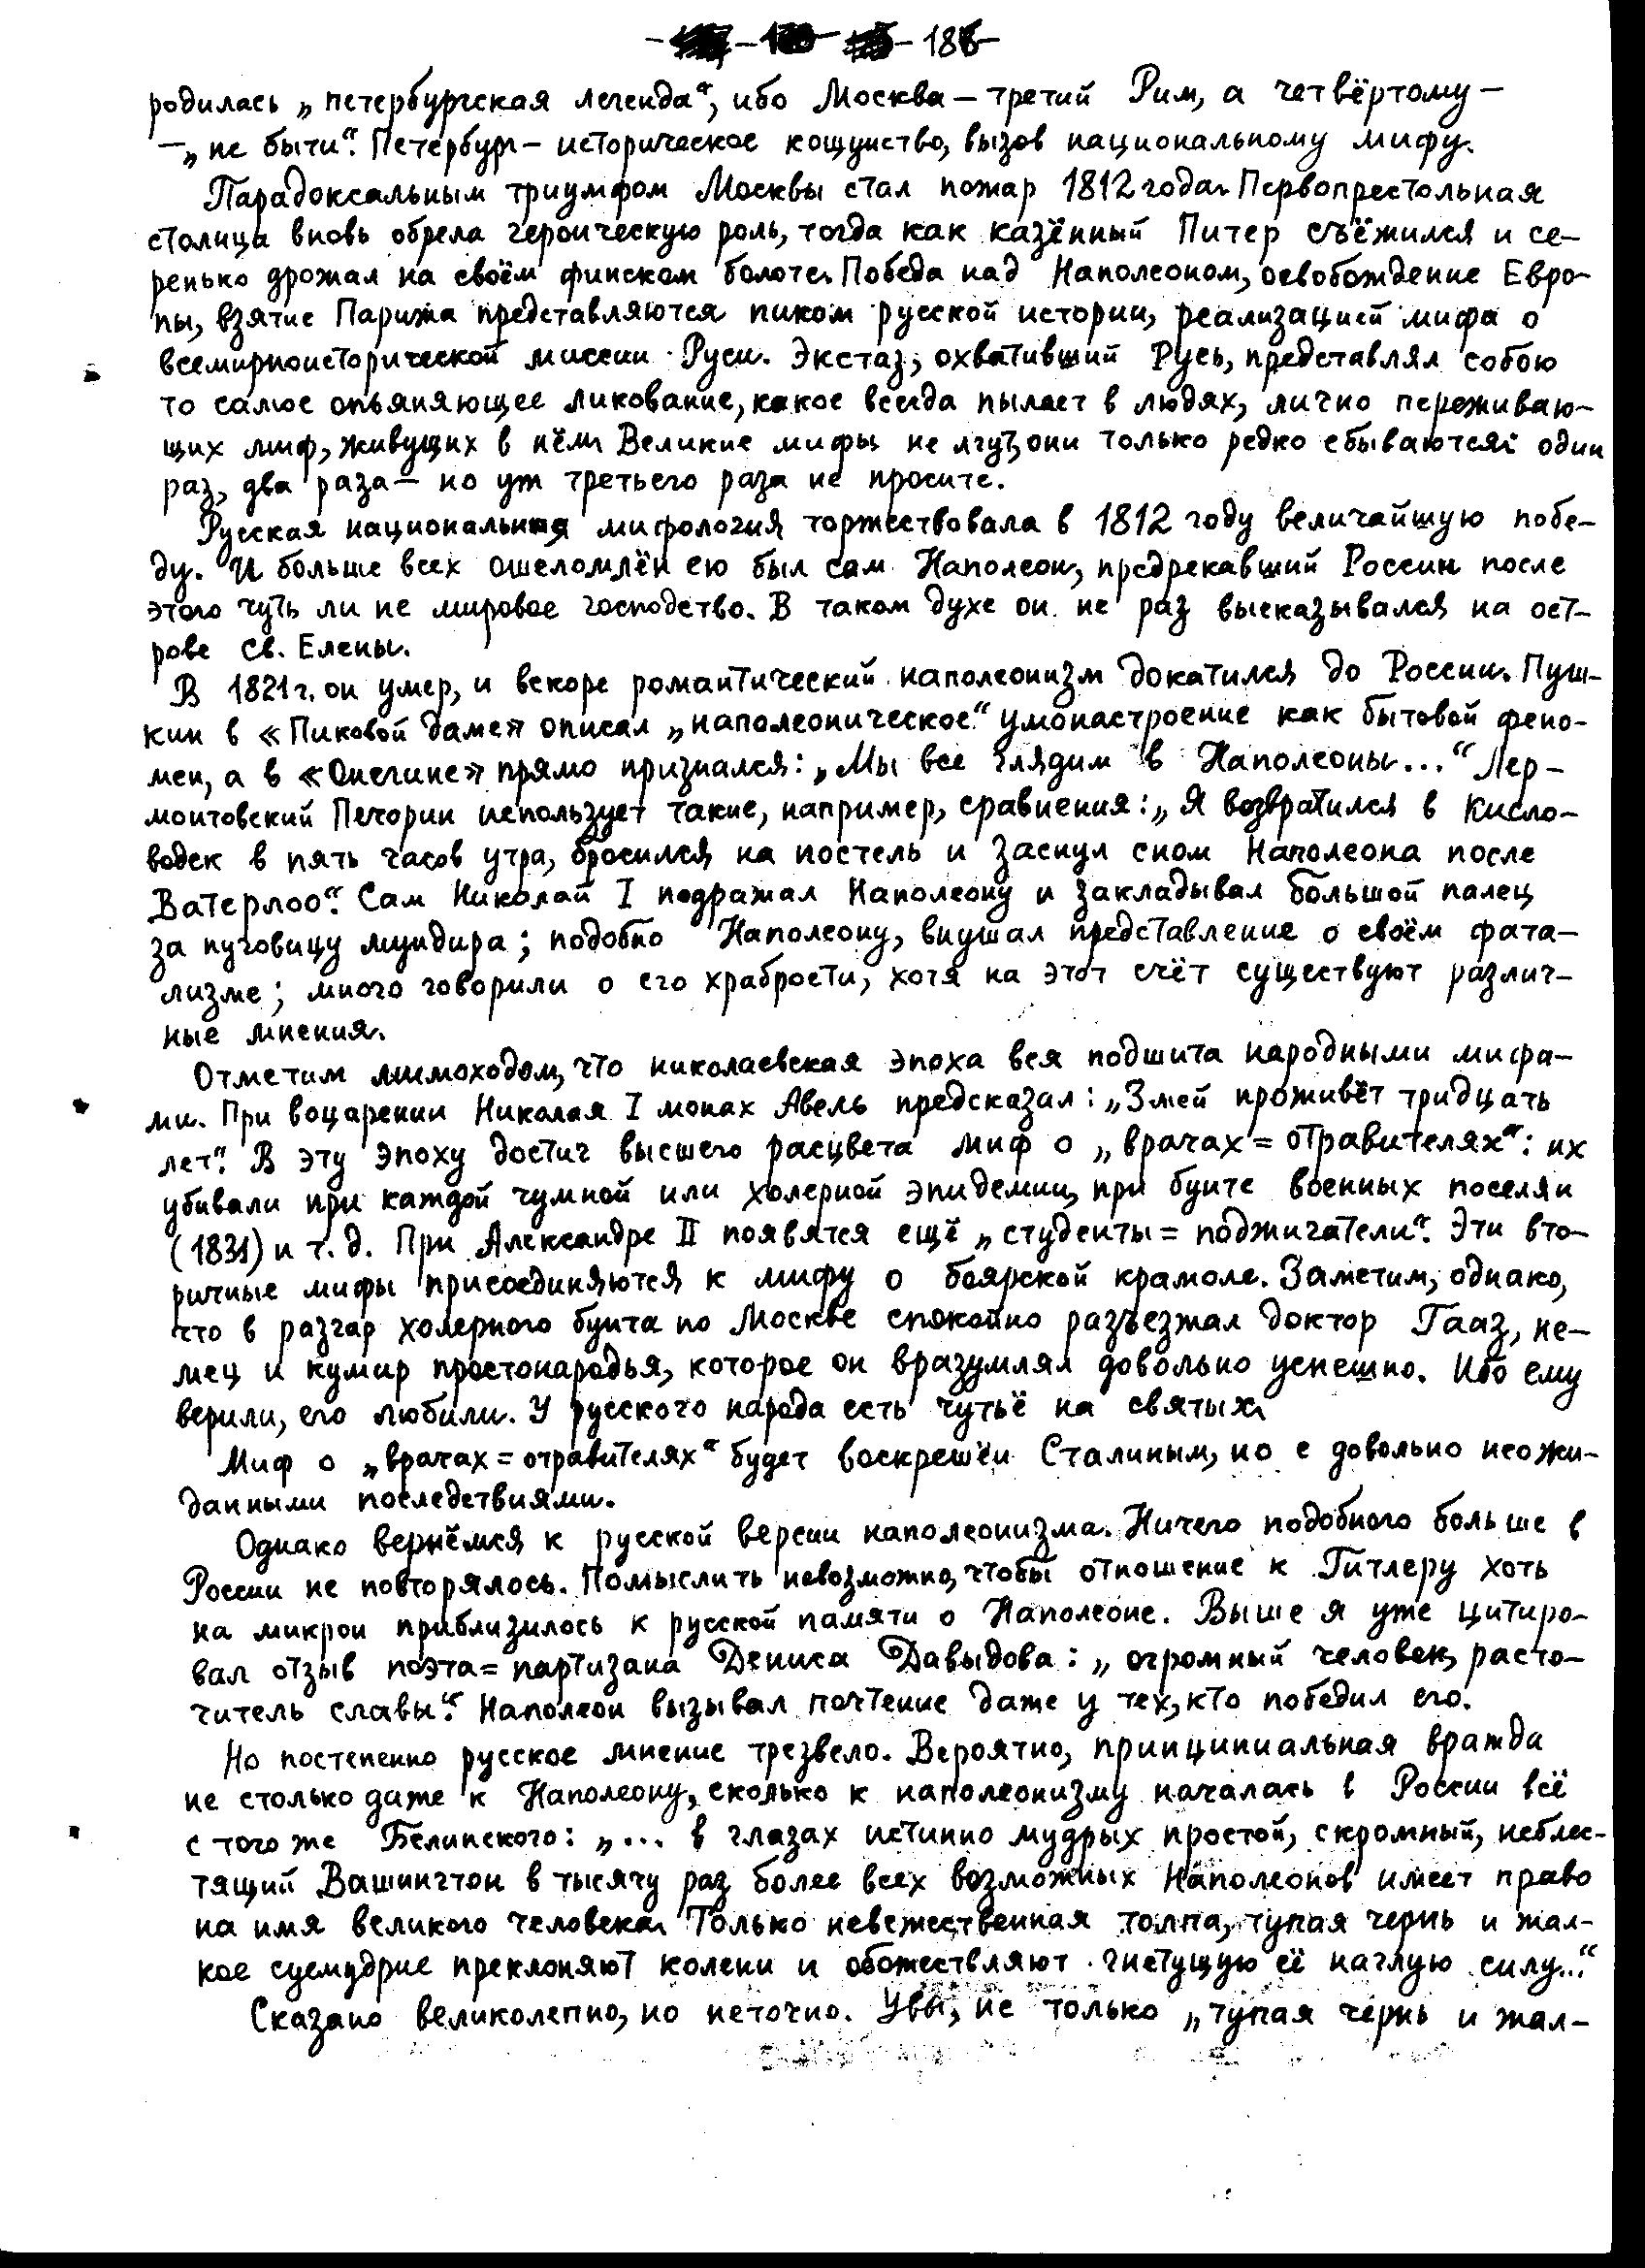 - 186 -
родилась „петербургская легенда“, ибо Москва — третий Рим, а четвёртому —
— „не быти“. Петербург — историческое кощунство, вызов национальному мифу.
Парадоксальным триумфом Москвы стал пожар 1812 года. Первопрестольная
столица вновь обрела героическую роль, тогда как казённый Питер съёжился и се-
ренько дрожал на своём финском болоте. Победа над Наполеоном, освобождение Евро-
пы, взятие Парижа представляются пиком русской истории, реализацией мифа о
всемирноисторической миссии Руси. Экстаз, охвативший Русь, представлял собою
то самое опьяняющее ликование, какое всегда пылает в людях, лично переживаю-
щих миф, живущих в нём. Великие мифы не лгут, они только редко сбываются: один
раз, два раза — но уж третьего раза не просите.
Русская национальная мифология торжествовала в 1812 году величайшую побе-
ду. И больше всех ошеломлён ею был сам Наполеон, предрекавший России после
этого чуть ли не мировое господство. В таком духе он не раз высказывался на ост-
рове Св. Елены.
В 1821 г. он умер, и вскоре романтический наполеонизм докатился до России. Пуш-
кин в «Пиковой даме» описал „наполеоническое“ умонастроение как бытовой фено-
мен, а в «Онегине» прямо признался: „Мы все глядим в Наполеоны...“ Лер-
монтовский Печорин использует такие, например, сравнения: „Я возвратился в Кисло-
водск в пять часов утра, бросился на постель и заснул сном Наполеона после
Ватерлоо“. Сам Николай I подражал Наполеону и закладывал большой палец
за пуговицу мундира; подобно Наполеону, внушал представление о своём фата-
лизме; много говорили о его храбрости, хотя на этот счёт существуют различ-
ные мнения.
Отметим мимоходом, что николаевская эпоха вся подшита народными мифа-
ми. При воцарении Николая I монах Авель предсказал: „Змей проживёт тридцать
лет“. В эту эпоху достиг высшего расцвета миф о „врачах = отравителях“: их
убивали при каждой чумной или холерной эпидемии, при бунте военных поселян
(1831) и т. д. При Александре II появятся ещё „студенты = поджигатели“. Эти вто-
ричные мифы присоединяются к мифу о боярской крамоле. Заметим, однако,
что в разгар холерного бунта по Москве спокойно разъезжал доктор Гааз, не-
мец и кумир простонародья, которое он вразумлял довольно успешно. Ибо ему
верили, его любили. У русского народа есть чутьё на святых.
Миф о „врачах = отравителях“ будет воскрешён Сталиным, но с довольно неожи-
данными последствиями.
Однако вернёмся к русской версии наполеонизма. Ничего подобного больше в
России не повторялось. Помыслить невозможно, чтобы отношение к Гитлеру хоть
на микрон приблизилось к русской памяти о Наполеоне. Выше я уже цитиро-
вал отзыв поэта = партизана Дениса Давыдова: „огромный человек, расто-
читель славы“. Наполеон вызывал почтение даже у тех, кто победил его.
Но постепенно русское мнение трезвело. Вероятно, принципиальная вражда
не столько даже к Наполеону, сколько к наполеонизму началась в России всё
с того же Белинского: „... в глазах истинно мудрых простой, скромный, неблес-
тящий Вашингтон в тысячу раз более всех возможных Наполеонов имеет право
на имя великого человека. Только невежественная толпа, тупая чернь и жал-
кое суемудрие преклоняют колени и обожествляют гнетущую её наглую силу...“
Сказано великолепно, но неточно. Увы, не только „тупая чернь и жал-